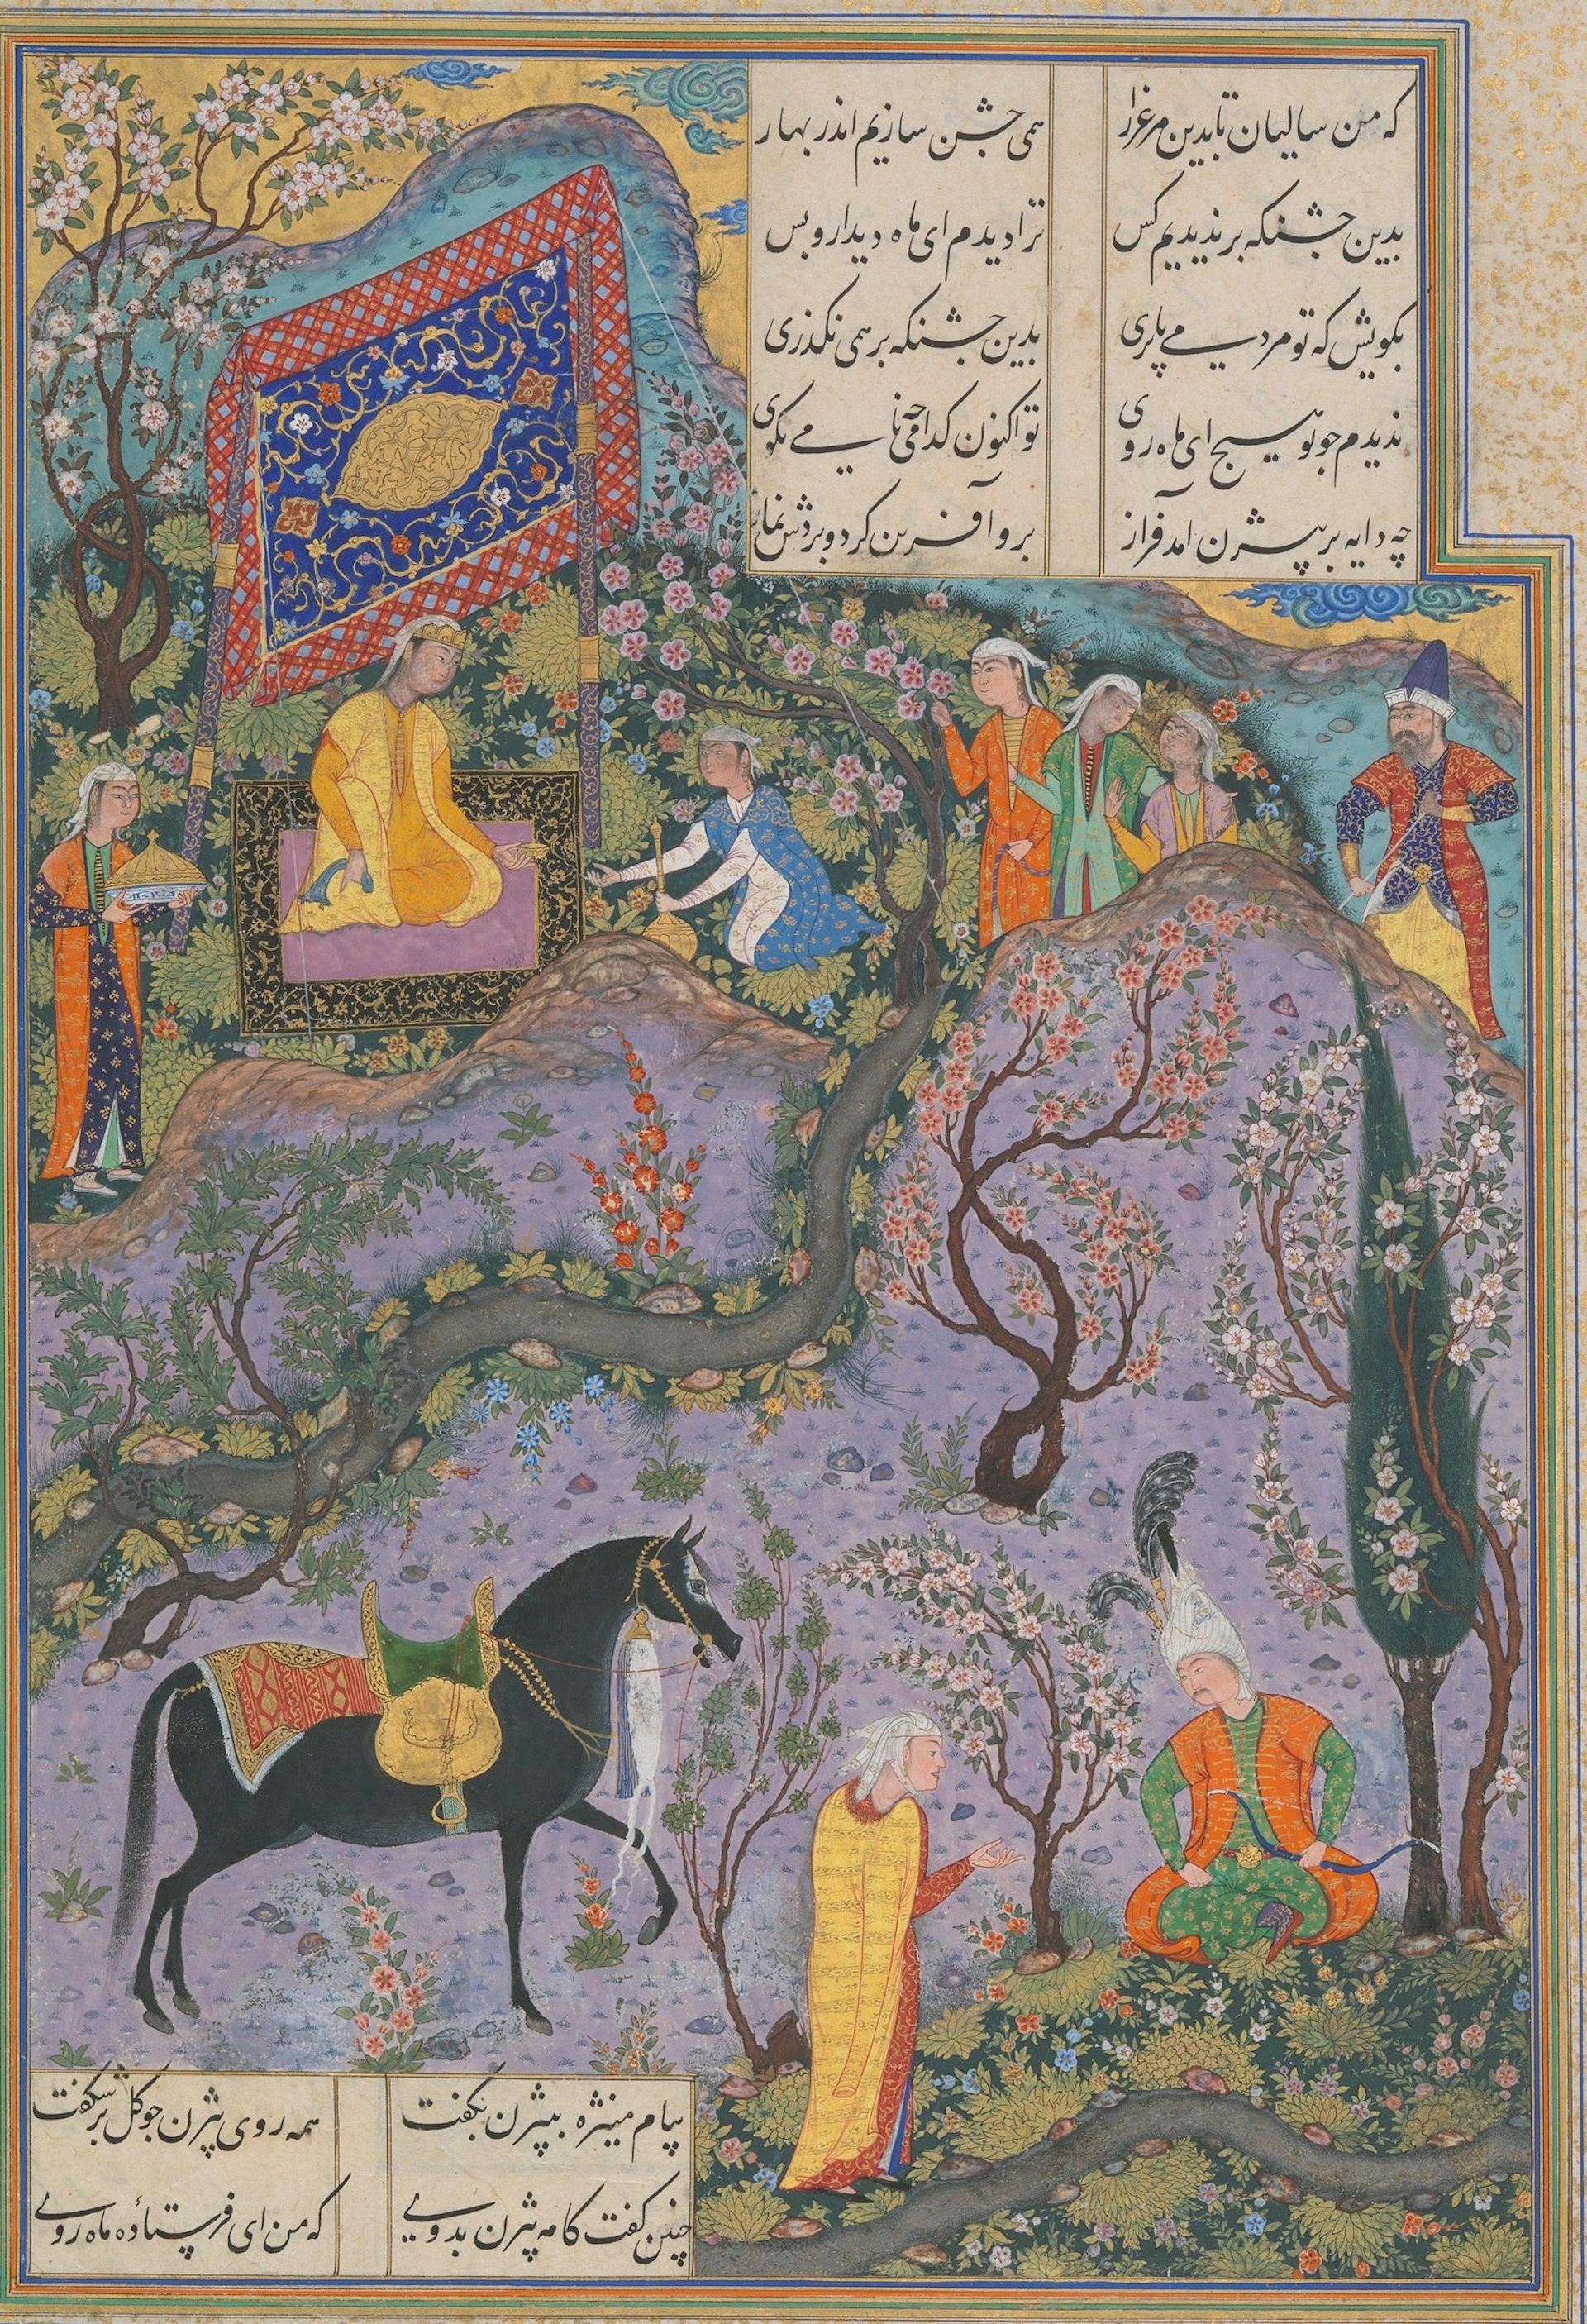 که من سالیان تا بدین مرغزار همی جشن سازیم اندر بهار
بدین جشنکه بر ندیدیم کس ترا دیدم ای ماه دیدار و بس
بکویش که تو مردمی یا پری بدین جشنکه بر همی نکذری
ندیدم چو تو هیچ ای ماه روی تو اکنون کدامی چه نامی بکوی
چه دایه بر بیژن آمد فراز برو آفرین کرد و بردش نماز
پیام منیژه ببیژن بکفت همه روی بیژن چو کل بر شکفت
چنین کفت کامه بیژن بدوی که من ای فرستادهٔ ماه روی